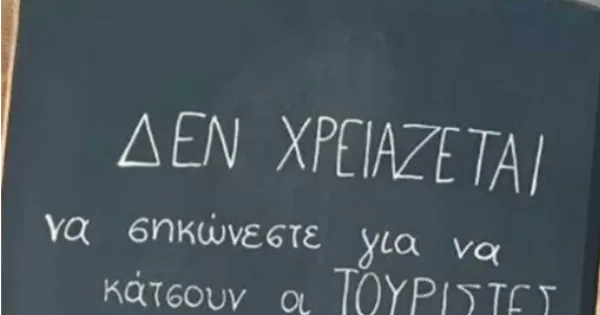 ΔΕΝ ΧΡΕΙΑΖΕΤΑΙ
να σηκώνεστε για να
κάτσουν οι ΤΟΥΡΙΣΤΕΣ